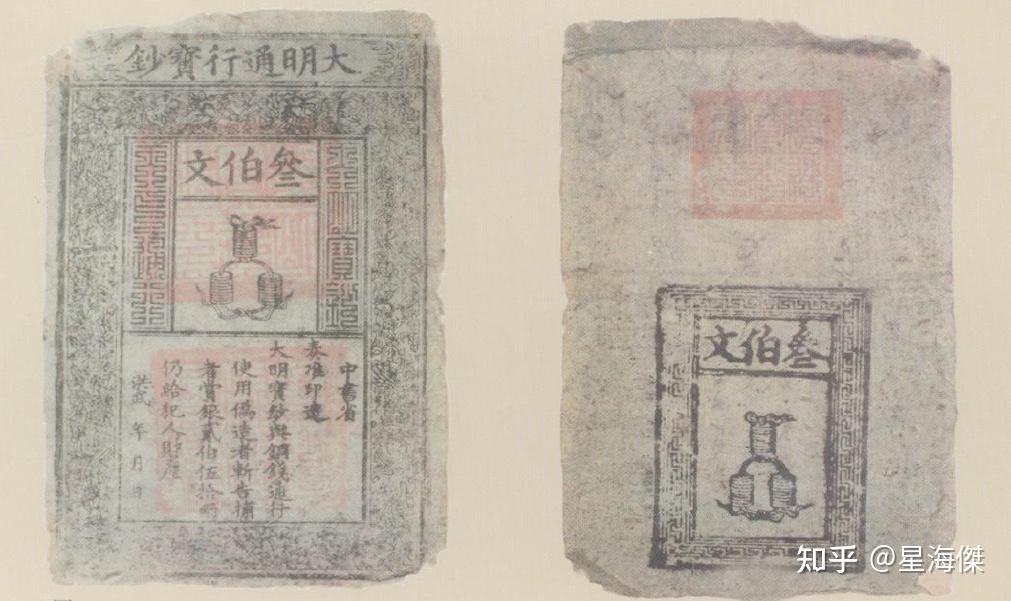 大明通行寶鈔
叄伯文
中書省
奏准印造
大明寶鈔與銅錢通行
使用僞造者斬告捕
者賞銀貳伯伍拾兩
仍給犯人財產
洪武 年 月 日
叄伯文
知乎 @星海傑